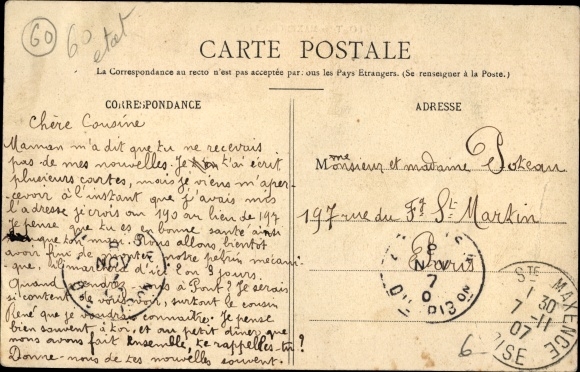 60
60
etat
CARTE POSTALE
La Correspondance au recto n'est pas acceptée par tous les Pays Etrangers. (Se renseigner à la Poste.)
CORRESPONDANCE
Chère Cousine
Maman m'a dit que tu ne recevais
pas de mes nouvelles. Je t'ai écrit
plusieurs cartes, mais je viens m'aper-
cevoir à l'instant que j'avais mis
l'adresse je crois au 190 au lieu de 197
Je pense que tu es en bonne santé ainsi
que ton mari. Nous allons bientôt
avoir fini de notre pétrin mécani-
que, il marchera d'ici 1 ou 2 jours.
Quand vous à Pont? Je serais
si content de vous voir, surtout le cousin
René que je voudrais connaître. Je pense
bien souvent à toi, et au petit dîner que
nous avons fait ensemble, te rappelles-tu?
Donne-nous de tes nouvelles souvent.
ADRESSE
Monsieur et madame Poteau
197 rue du Fg St Martin
Paris
STE MAXENCE
1 30
7 - 11
07
OISE
6